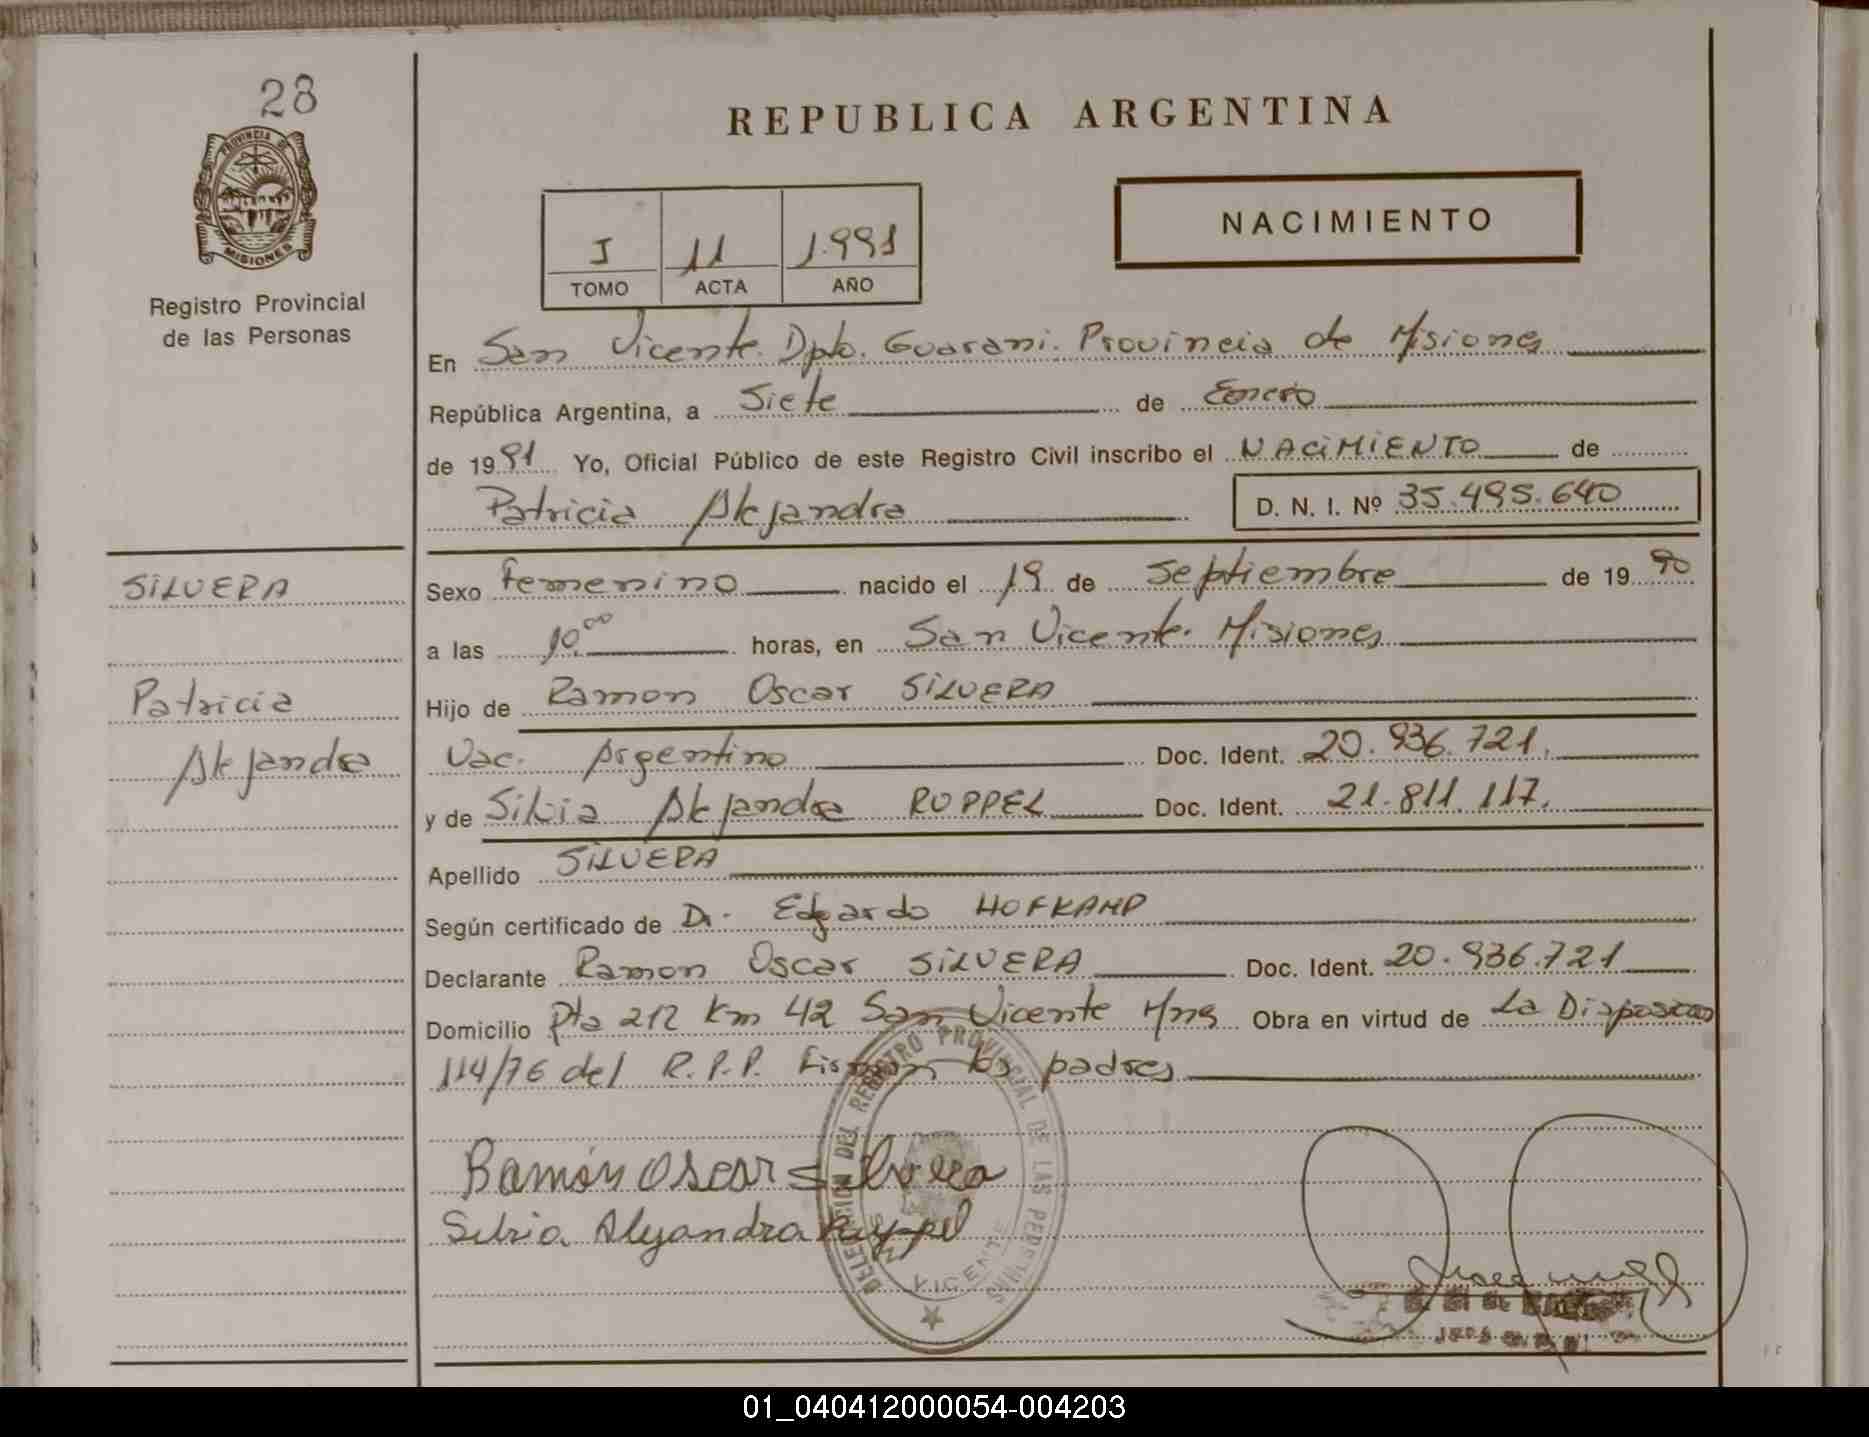 28
PROVINCIA DE
MISIONES
Registro Provincial
de las Personas
REPUBLICA ARGENTINA
NACIMIENTO
I 11 1.991
TOMO ACTA AÑO
En San Vicente. Dpto. Guarani. Provincia de Misiones
República Argentina, a Siete de Enero
de 1991 Yo, Oficial Público de este Registro Civil inscribo el NACiMiENTO de
Patricia Alejandra D. N. I. Nº 35.495.640
SiLVERA
Patricia
Alejandra
Sexo Femenino nacido el 19 de Septiembre de 1990
a las 10.00 horas, en San Vicente. Misiones
Hijo de Ramon Oscar SiLVERA
Nac. Argentino Doc. Ident. 20.936.721.
y de Silvia Alejandra RUPPEL Doc. Ident. 21.811.117.
Apellido SiLVERA
Según certificado de Dr. Edgardo HOFKAMP
Declarante Ramon Oscar SiLVERA Doc. Ident. 20.936.721
Domicilio Rta 212 Km 42 San Vicente Mns Obra en virtud de La Disposicion
114/76 del R.P.P. Firman los padres
Ramón Oscar Silvera
Silvia Alejandra Ruppel
DELEGACION DEL REGISTRO PROVINCIAL DE LAS PERSONAS
VICENTE
01_040412000054-004203